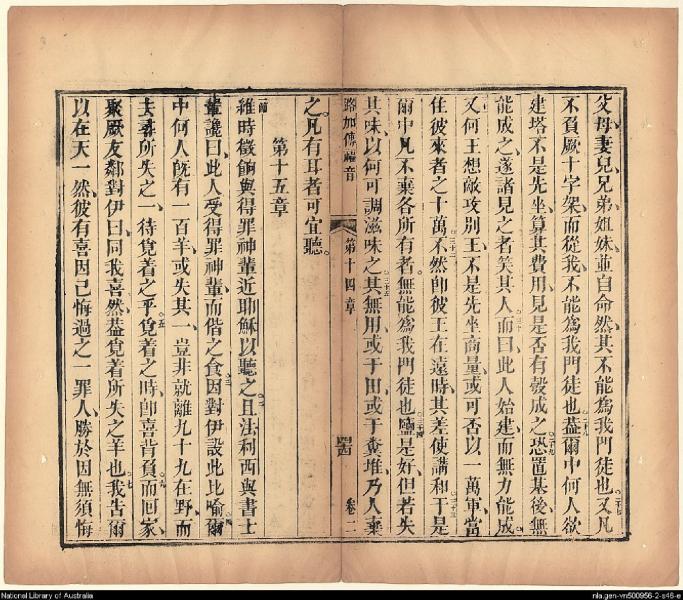 父母妻兒兄弟姐妹並自命然其不能爲我門徒也又凡
不負厥十字架而從我不能爲我門徒也葢爾中何人欲
建塔不是先坐算其費用見是否有彀成之恐置基後無
能成之遂諸見之者笑其人而曰此人始建而無力能成
又何王想敵攻別王不是先坐商量或可否以一萬軍當
住彼來者之十萬不然卽彼王在遠時其差使講和于是
爾中凡不棄各所有者無能爲我門徒也鹽是好但若失
其味以何可調滋味之其無用或于田或于糞堆乃人棄
路加傳福音 第十四章 卷二
之凡有耳者可宜聽
第十五章
維時徵餉與得罪神輩近耶穌以聽之且法利西與書士
輩譏曰此人受得罪神輩而偕之食因對伊設此比喻爾
中何人旣有一百羊或失其一豈非就離九十九在野而
去尋所失之一待覓着之乎覓着之時卽喜背負而囘家
聚厥友鄰對伊曰同我喜然葢覓着所失之羊也我告爾
以在天一然彼有喜因己悔過之一罪人勝於因無須悔
National Library of Australia
nla.gen-vn500956-2-s46-e